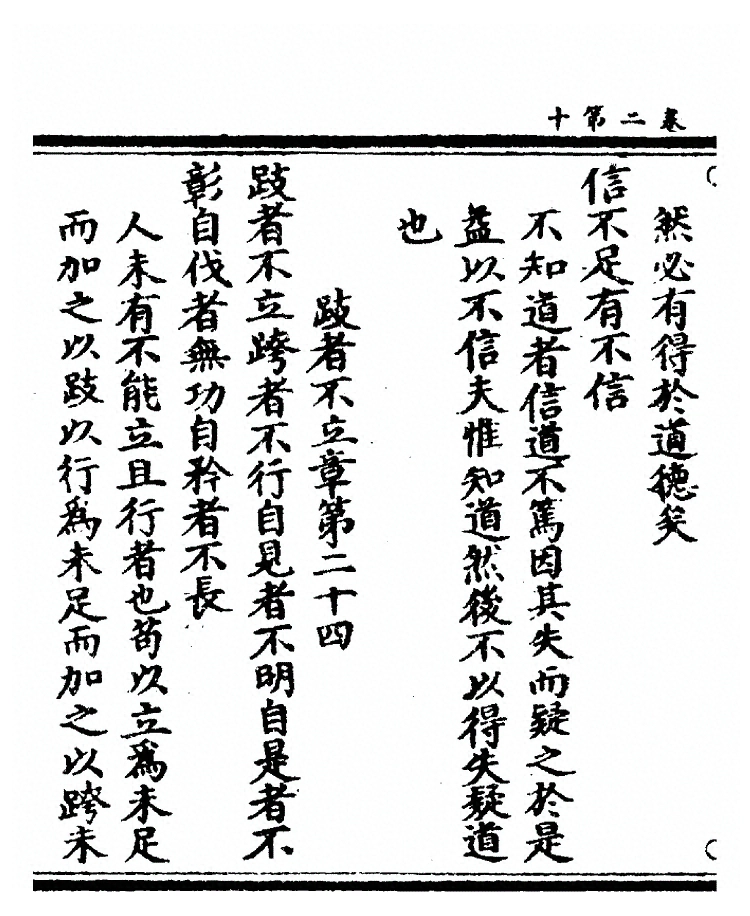 卷二第十
然必有得於道德矣
信不足有不信
不知道者信道不篤因其失而疑之於是
益以不信夫惟知道然後不以得失疑道
也
跂者不立章第二十四
跂者不立跨者不行自見者不明自是者不
彰自伐者無功自矜者不長
人未有不能立且行者也苟以立爲未足
而加之以跂以行爲未足而加之以跨未